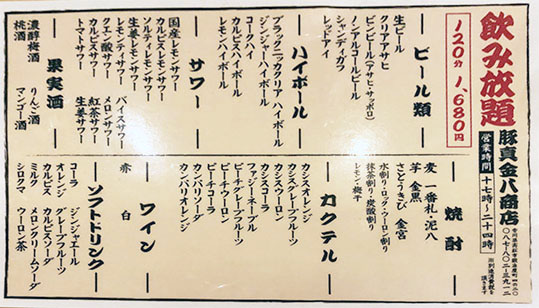 飲み放題
120分 1,680円
豚真金八商店
営業時間 十七時〜二十四時
※別途消費税を頂きます
ビール類
生ビール
クリアアサヒ
ビンビール(アサヒ・サッポロ)
ノンアルコールビール
シャンディガフ
レッドアイ
ハイボール
ブラックニッカクリア ハイボール
ジンジャーハイボール
カルピスハイボール
コークハイ
レモンハイボール
サワー
国産レモンサワー
ソルティレモンサワー
カルピスレモンサワー
生姜レモンサワー
レモンティサワー
クエン酸サワー
カルピスサワー
トマトサワー
バイスサワー
メロンサワー
紅茶サワー
生姜サワー
果実酒
濃醇梅酒
桃酒
りんご酒
マンゴー酒
焼酎
麦 一番札・泥八
芋 金黒
さとうきび 金宮
水割り・ロック・ウーロン割り
抹茶割り・炭酸割り
レモン・梅干
カクテル
カシスオレンジ
カシスグレープフルーツ
カシスウーロン
カシスソーダ
ファジーネーブル
ピーチグレープフルーツ
ピーチウーロン
ピーチコーラ
カンパリソーダ
カンパリオレンジ
ワイン
赤 白
ソフトドリンク
コーラ
オレンジ
カルピス
ミルク
シロクマ
ジンジャエール
グレープフルーツ
カルピスソーダ
メロンクリームソーダ
ウーロン茶